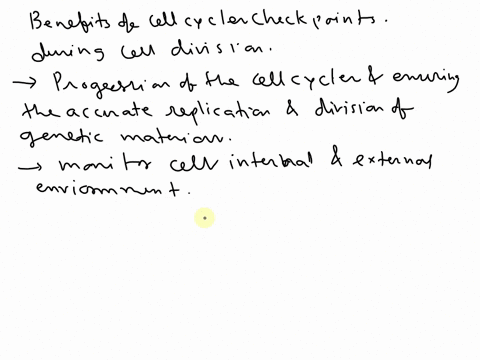 Benefits of cell cycler check points.
during cell division.
→ Progession of the cell cycler & ensuring
the accurate replication & division of
genetic material.
→ monitor cell internal & external
enviornment.